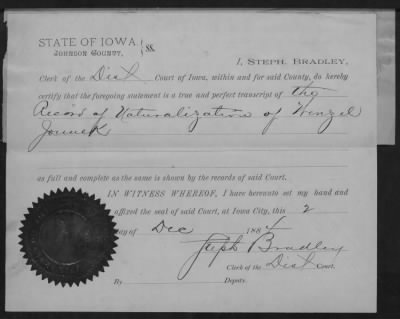 STATE OF IOWA, } ss.
JOHNSON COUNTY,
I, STEPH. BRADLEY,
Clerk of the Dist Court of Iowa, within and for said County, do hereby
certify that the foregoing statement is a true and perfect transcript of the
Record of Naturalization of Wenzel
as full and complete as the same is shown by the records of said Court.
IN WITNESS WHEREOF, I have hereunto set my hand and
affixed the seal of said Court, at Iowa City, this 2
day of Dec 1884
Steph Bradley
Clerk of the Dist Court.
By Deputy.